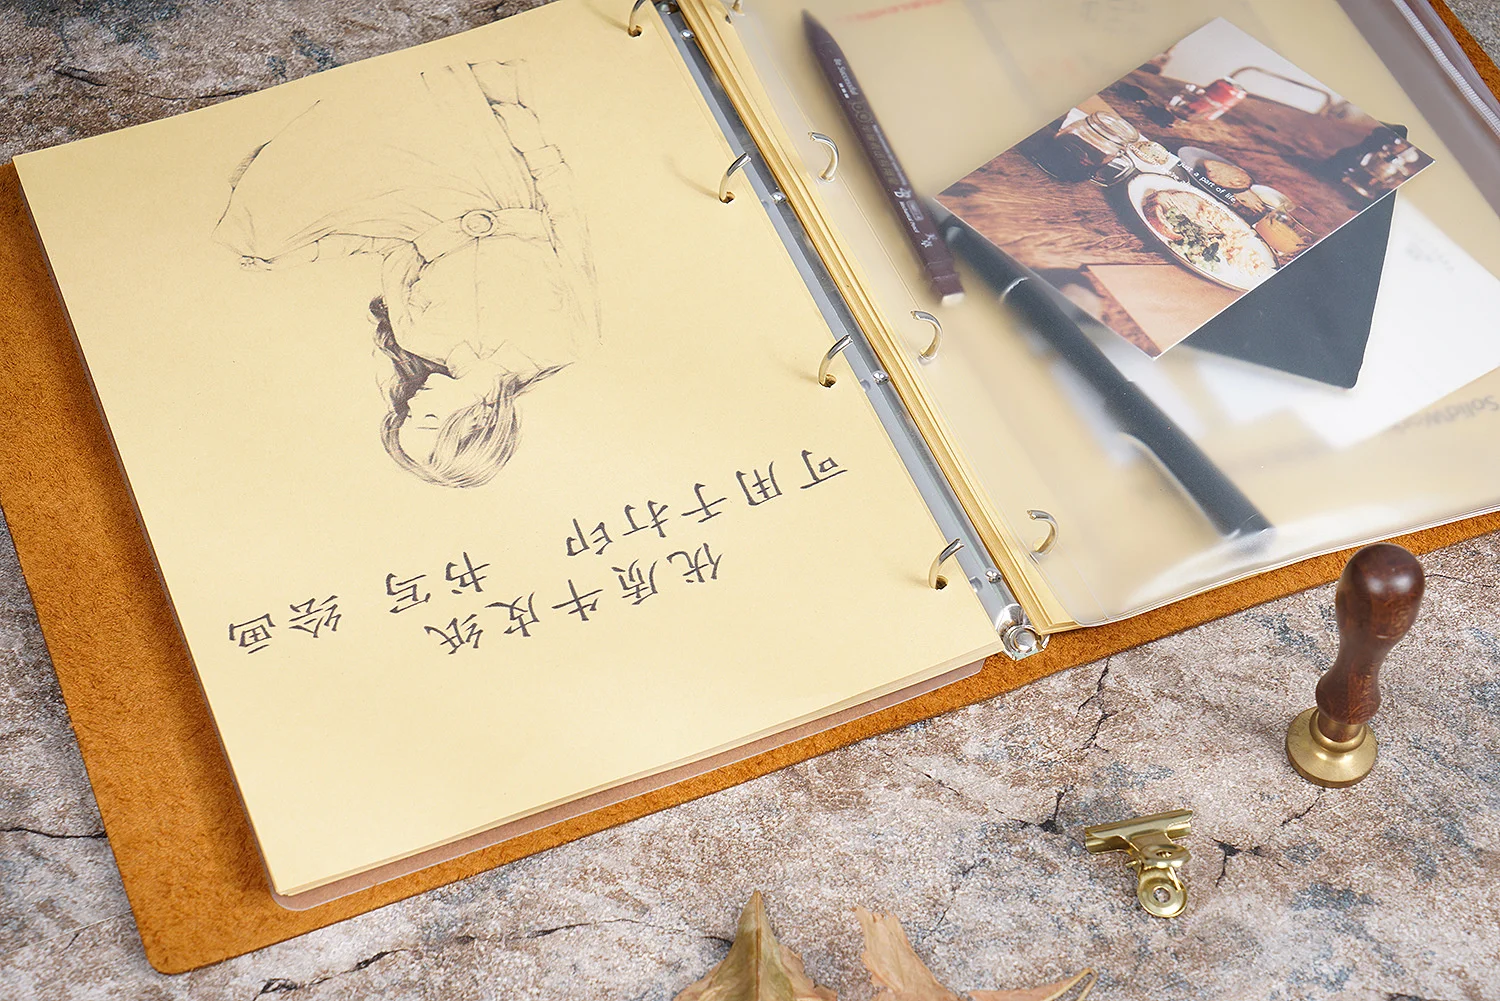 优质牛皮纸
可用于打印 书写 绘画
Be Successful
a part of life.